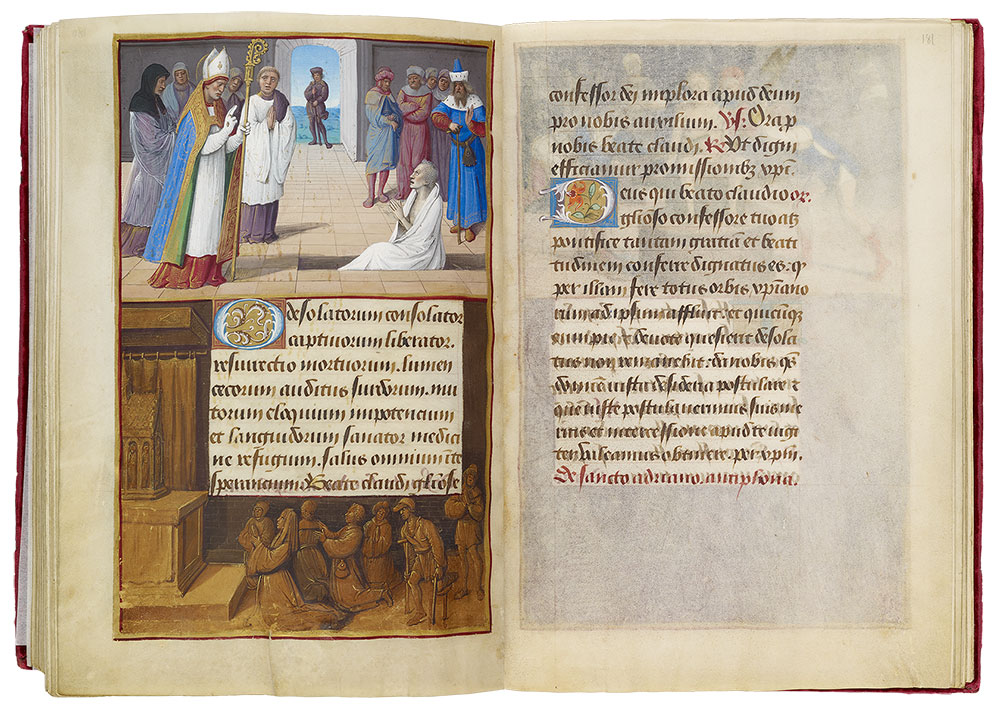 O desolatorum consolator
captivorum liberator.
resurrectio mortuorum. lumen
cecorum auditus surdorum. mu
torum eloquium impotencium
et languidorum sanator medici
ne refugium. salus omnium in te
sperancium O beate claudi gliose
181
confessor dei implora apud deum
pro nobis auxilium. Vs. Ora p
nobis beate claudi. R Vt digni
efficiamur promissionibz xpi.
Deus qui beato claudio or.
glioso confessore tuo atz
pontifice tantam gratiam et beati
tudinem conferre dignatus es: q
per illam fere totus orbis xpiano
rum ad ipsum affluit: et quicūqz
eum pie et devote quesierit desola
tus non remanebit: da nobis qs
dm
que iuste postulaverimus suis me
ritis et intercessione apud te iugi
ter valeamus obtinere. per xpm.
De sancto adriano. antiphona.